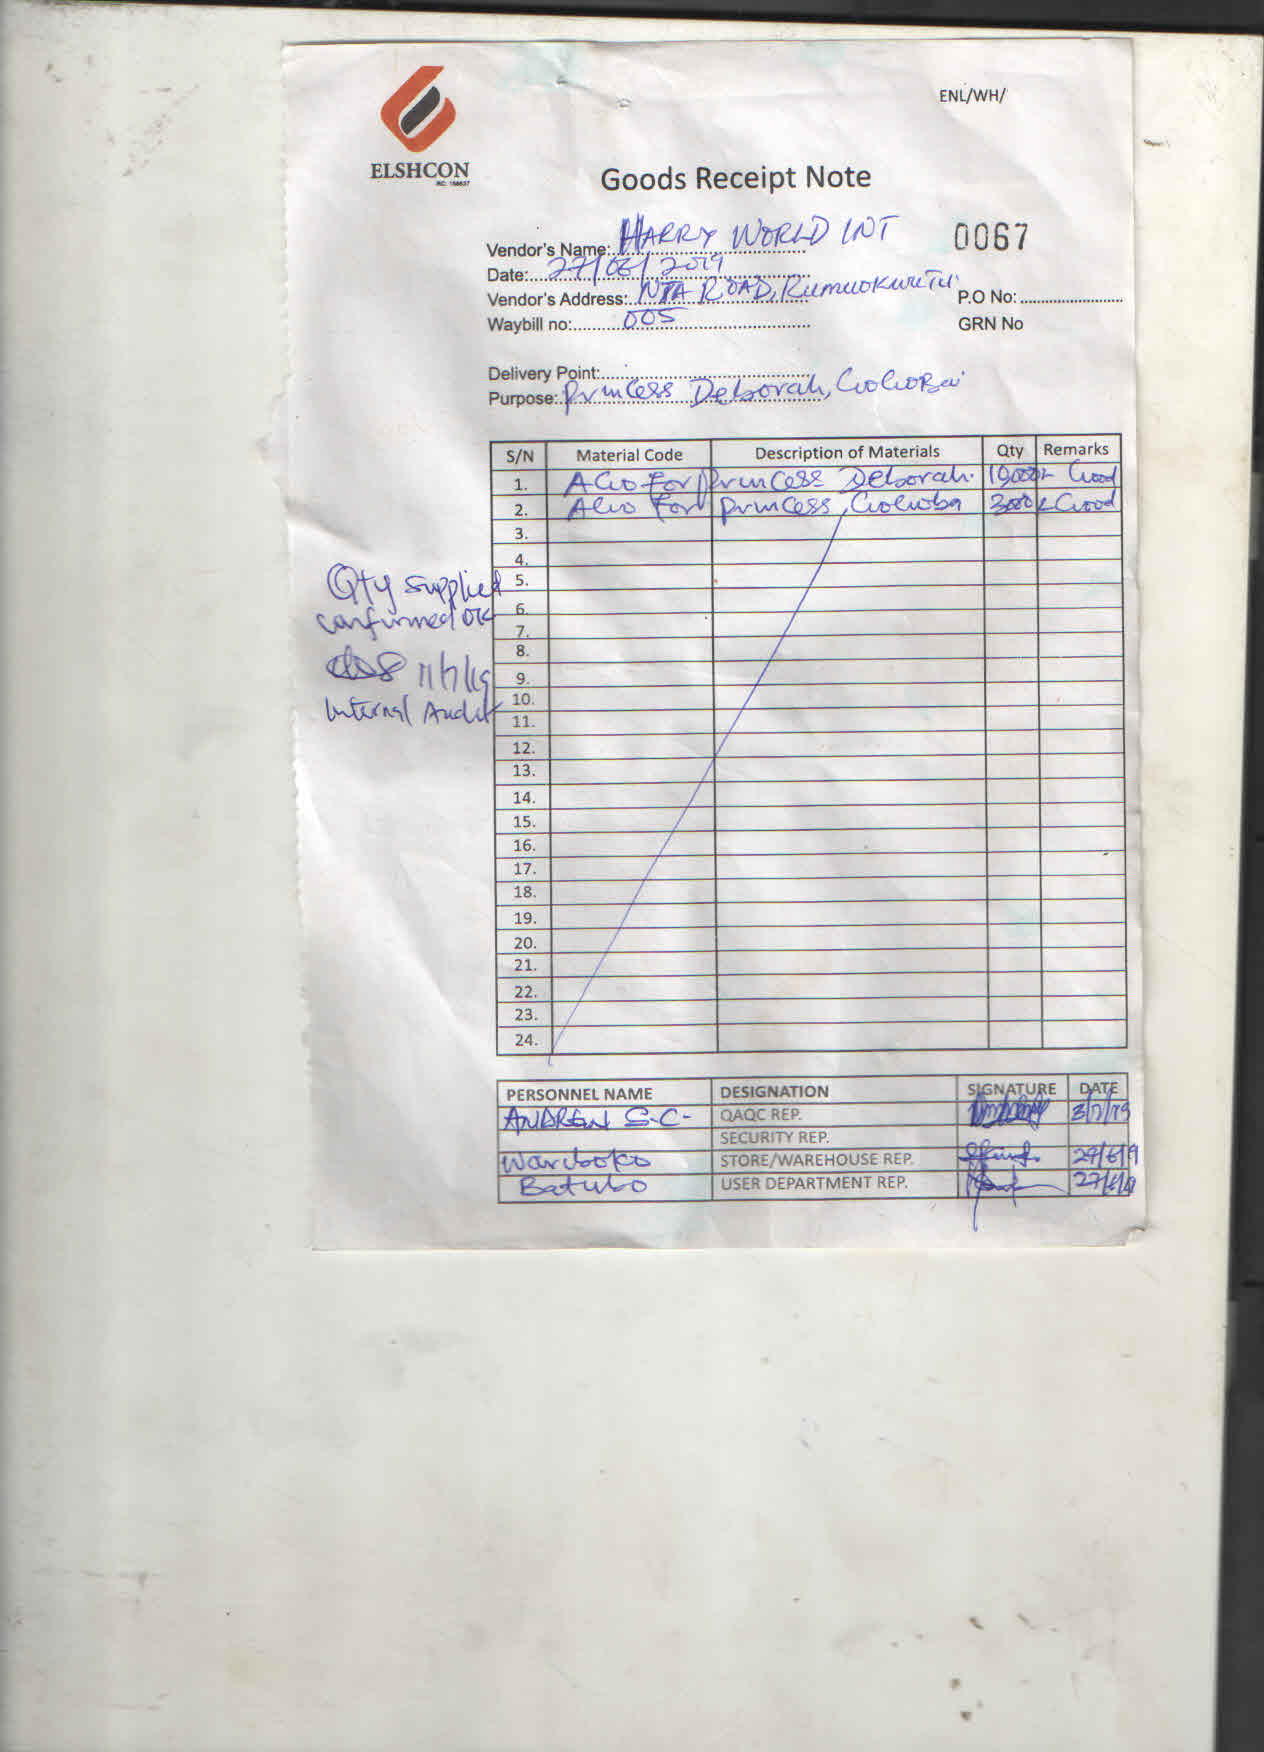 ENL/WH/
ELSHCON
RC: 156637
Goods Receipt Note
0067
Vendor's Name: HARRY WORLD INT
Date: 27/06/2019
Vendor's Address: NTA ROAD, Rumuokwuta
P.O No:
Waybill no: 005
GRN No
Delivery Point:
Purpose: Princess Deborah,
S/N Material Code Description of Materials Qty Remarks
1. AGO For Princess Deborah. 10,000L Good
2. AGO For Princess, 3000L Good
3.
4.
5.
6.
7.
8.
9.
10.
11.
12.
13.
14.
15.
16.
17.
18.
19.
20.
21.
22.
23.
24.
Qty supplied
confirmed OK
11/7/19
Internal Audit
PERSONNEL NAME DESIGNATION SIGNATURE DATE
ANDREW S.C- QAQC REP. 3/7/19
SECURITY REP.
Wariboko STORE/WAREHOUSE REP.
Batubo USER DEPARTMENT REP.